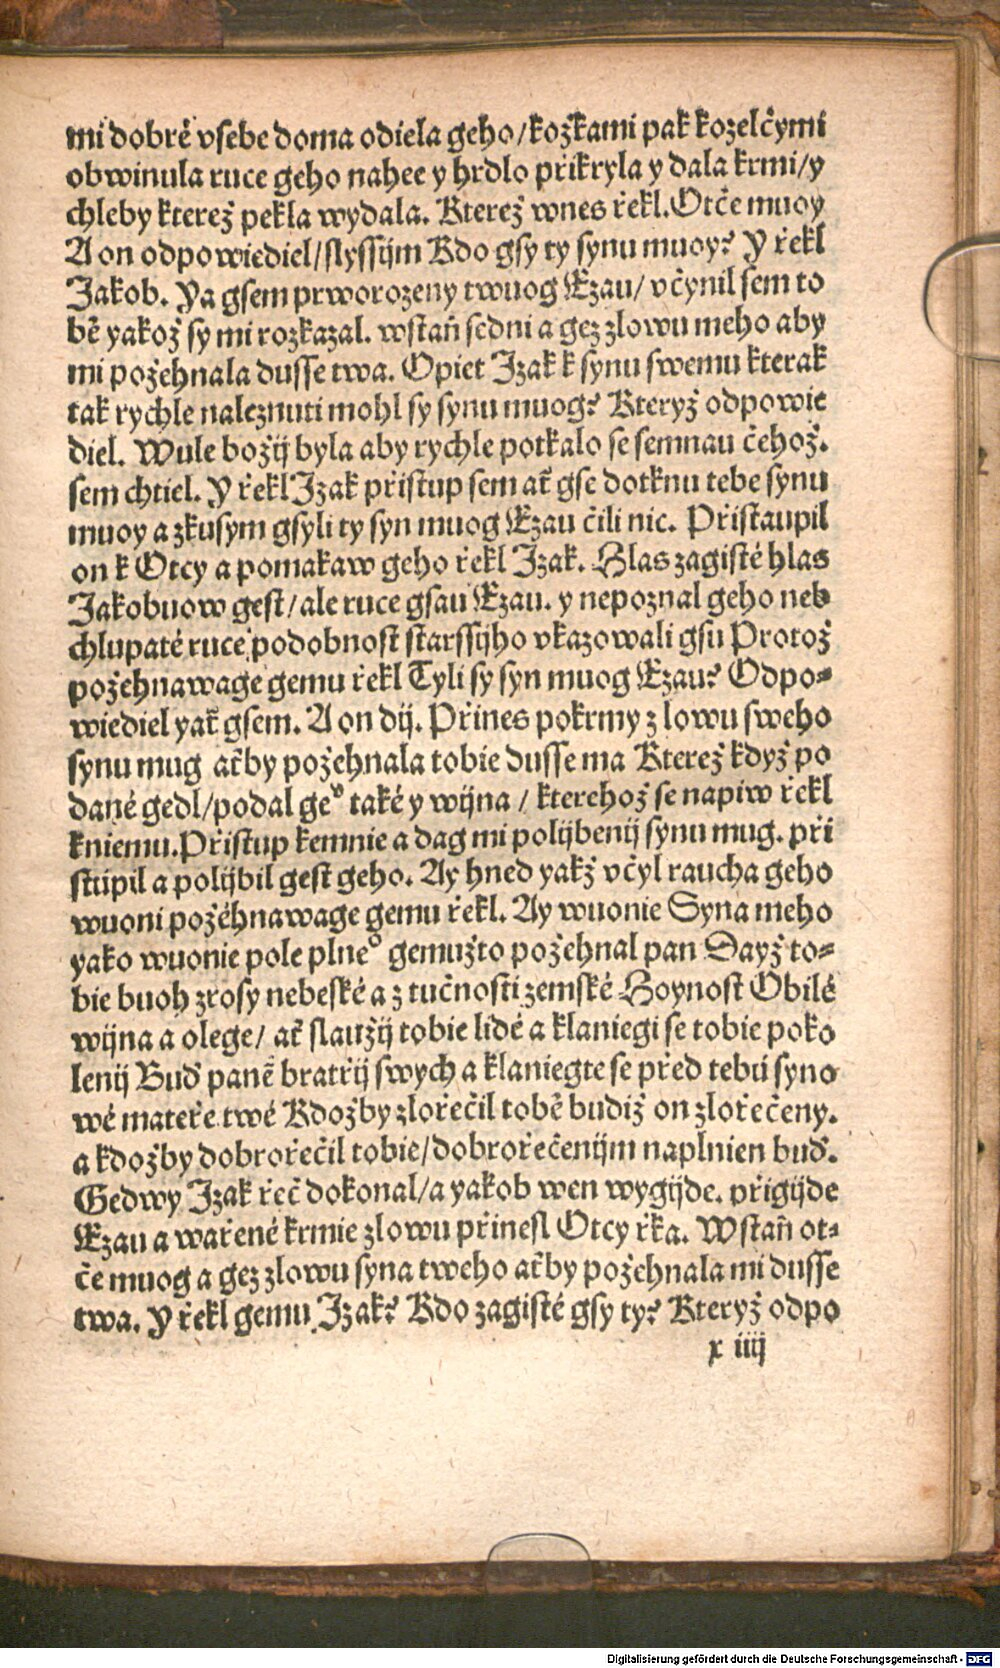 mi dobré vsebe doma odiela geho/kožkami pak kozelčymi
obwinula ruce geho nahee y hrdlo přikryla y dala krmi/y
chleby kterež pekla wydala. Kterež wnes řekl. Otče muoy
A on odpowiediel/slyssijm Kdo gsy ty synu muoy? Y řekl
Jakob. Ya gsem prworozeny twuog Ezau/ včynil sem to
bě yakož sy mi rozkazal. wstaň sedni a gez zlowu meho aby
mi požehnala dusse twa. Opiet Jzak k synu swemu kterak
tak rychle naleznuti mohl sy synu muog? Kteryž odpowie
diel. Wule božij byla aby rychle potkalo se semnau čehož.
sem chtiel. Y řekl Jzak přistup sem ať gse dotknu tebe synu
muoy a zkusym gsyli ty syn muog Ezau čili nic. Přistaupil
on k Otcy a pomakaw geho řekl Jzak. Hlas zagisté hlas
Jakobuow gest/ ale ruce gsau Ezau. y nepoznal geho neb
chlupaté ruce podobnost starssijho vkazowali gsu Protož
požehnawage gemu řekl Tyli sy syn muog Ezau? Odpo=
wiediel yak gsem. A on dij. Přines pokrmy z lowu sweho
synu mug ať by požehnala tobie dusse ma Kterež když po
dané gedl/podal geº také y wijna / kterehož se napiw řekl
kniemu. Přistup kemnie a dag mi polijbenij synu mug. při
stúpil a polijbil gest geho. Ay hned yakž včyl raucha geho
wuoni požěhnawage gemu řekl. Ay wuonie Syna meho
yako wuonie pole plneº gemužto požehnal pan Dayž to=
bie buoh zrosy nebeské a z tučnosti zemské Hoynost Obilé
wijna a olege/ ať slaužij tobie lidé a klaniegi se tobie poko
lenij Buď paně bratřij swych a klaniegte se před tebú syno
wé mateře twé Kdožby zlořečil tobě budiž on zlořečeny.
a kdožby dobrořečil tobie/dobrořečenijm naplnien buď.
Gedwy Jzak řeč dokonal/a yakob wen wygijde. přigijde
Ezau a wařené krmie zlowu přinesl Otcy řka. Wstaň ot=
če muog a gez zlowu syna tweho ať by požehnala mi dusse
twa. Y řekl gemu Jzak? Kdo zagisté gsy ty? Kteryž odpo
x iiij
Digitalisierung gefördert durch die Deutsche Forschungsgemeinschaft - DFG